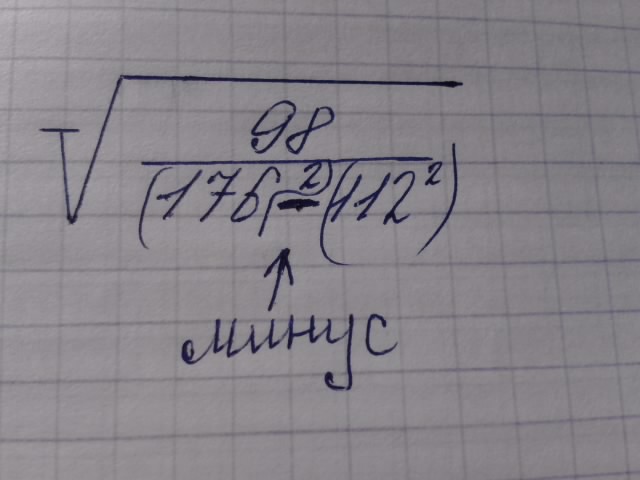 √
98
(176²) - (112²)
минус